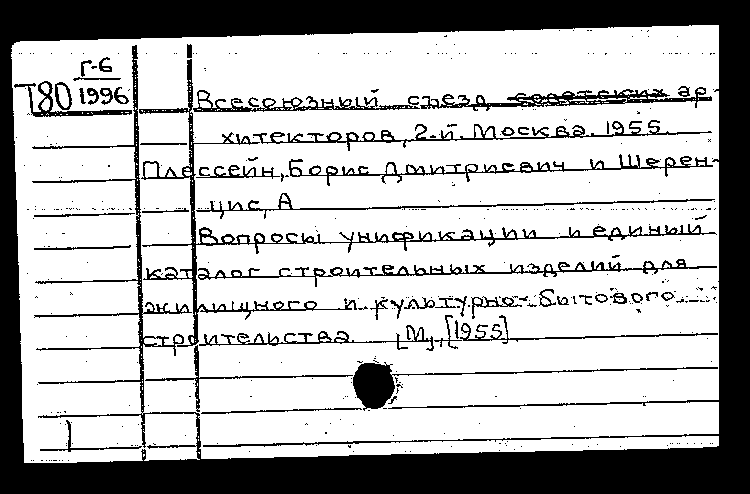 Г-6
Т80 1996
Всесоюзный съезд советских ар-
хитекторов, 2-й. Москва. 1955.
Плессейн, Борис Дмитриевич и Шерен-
цис, А
Вопросы унификации и единый
каталог строительных изделий для
жилищного и культурно-бытового
строительства. [М., [1955].